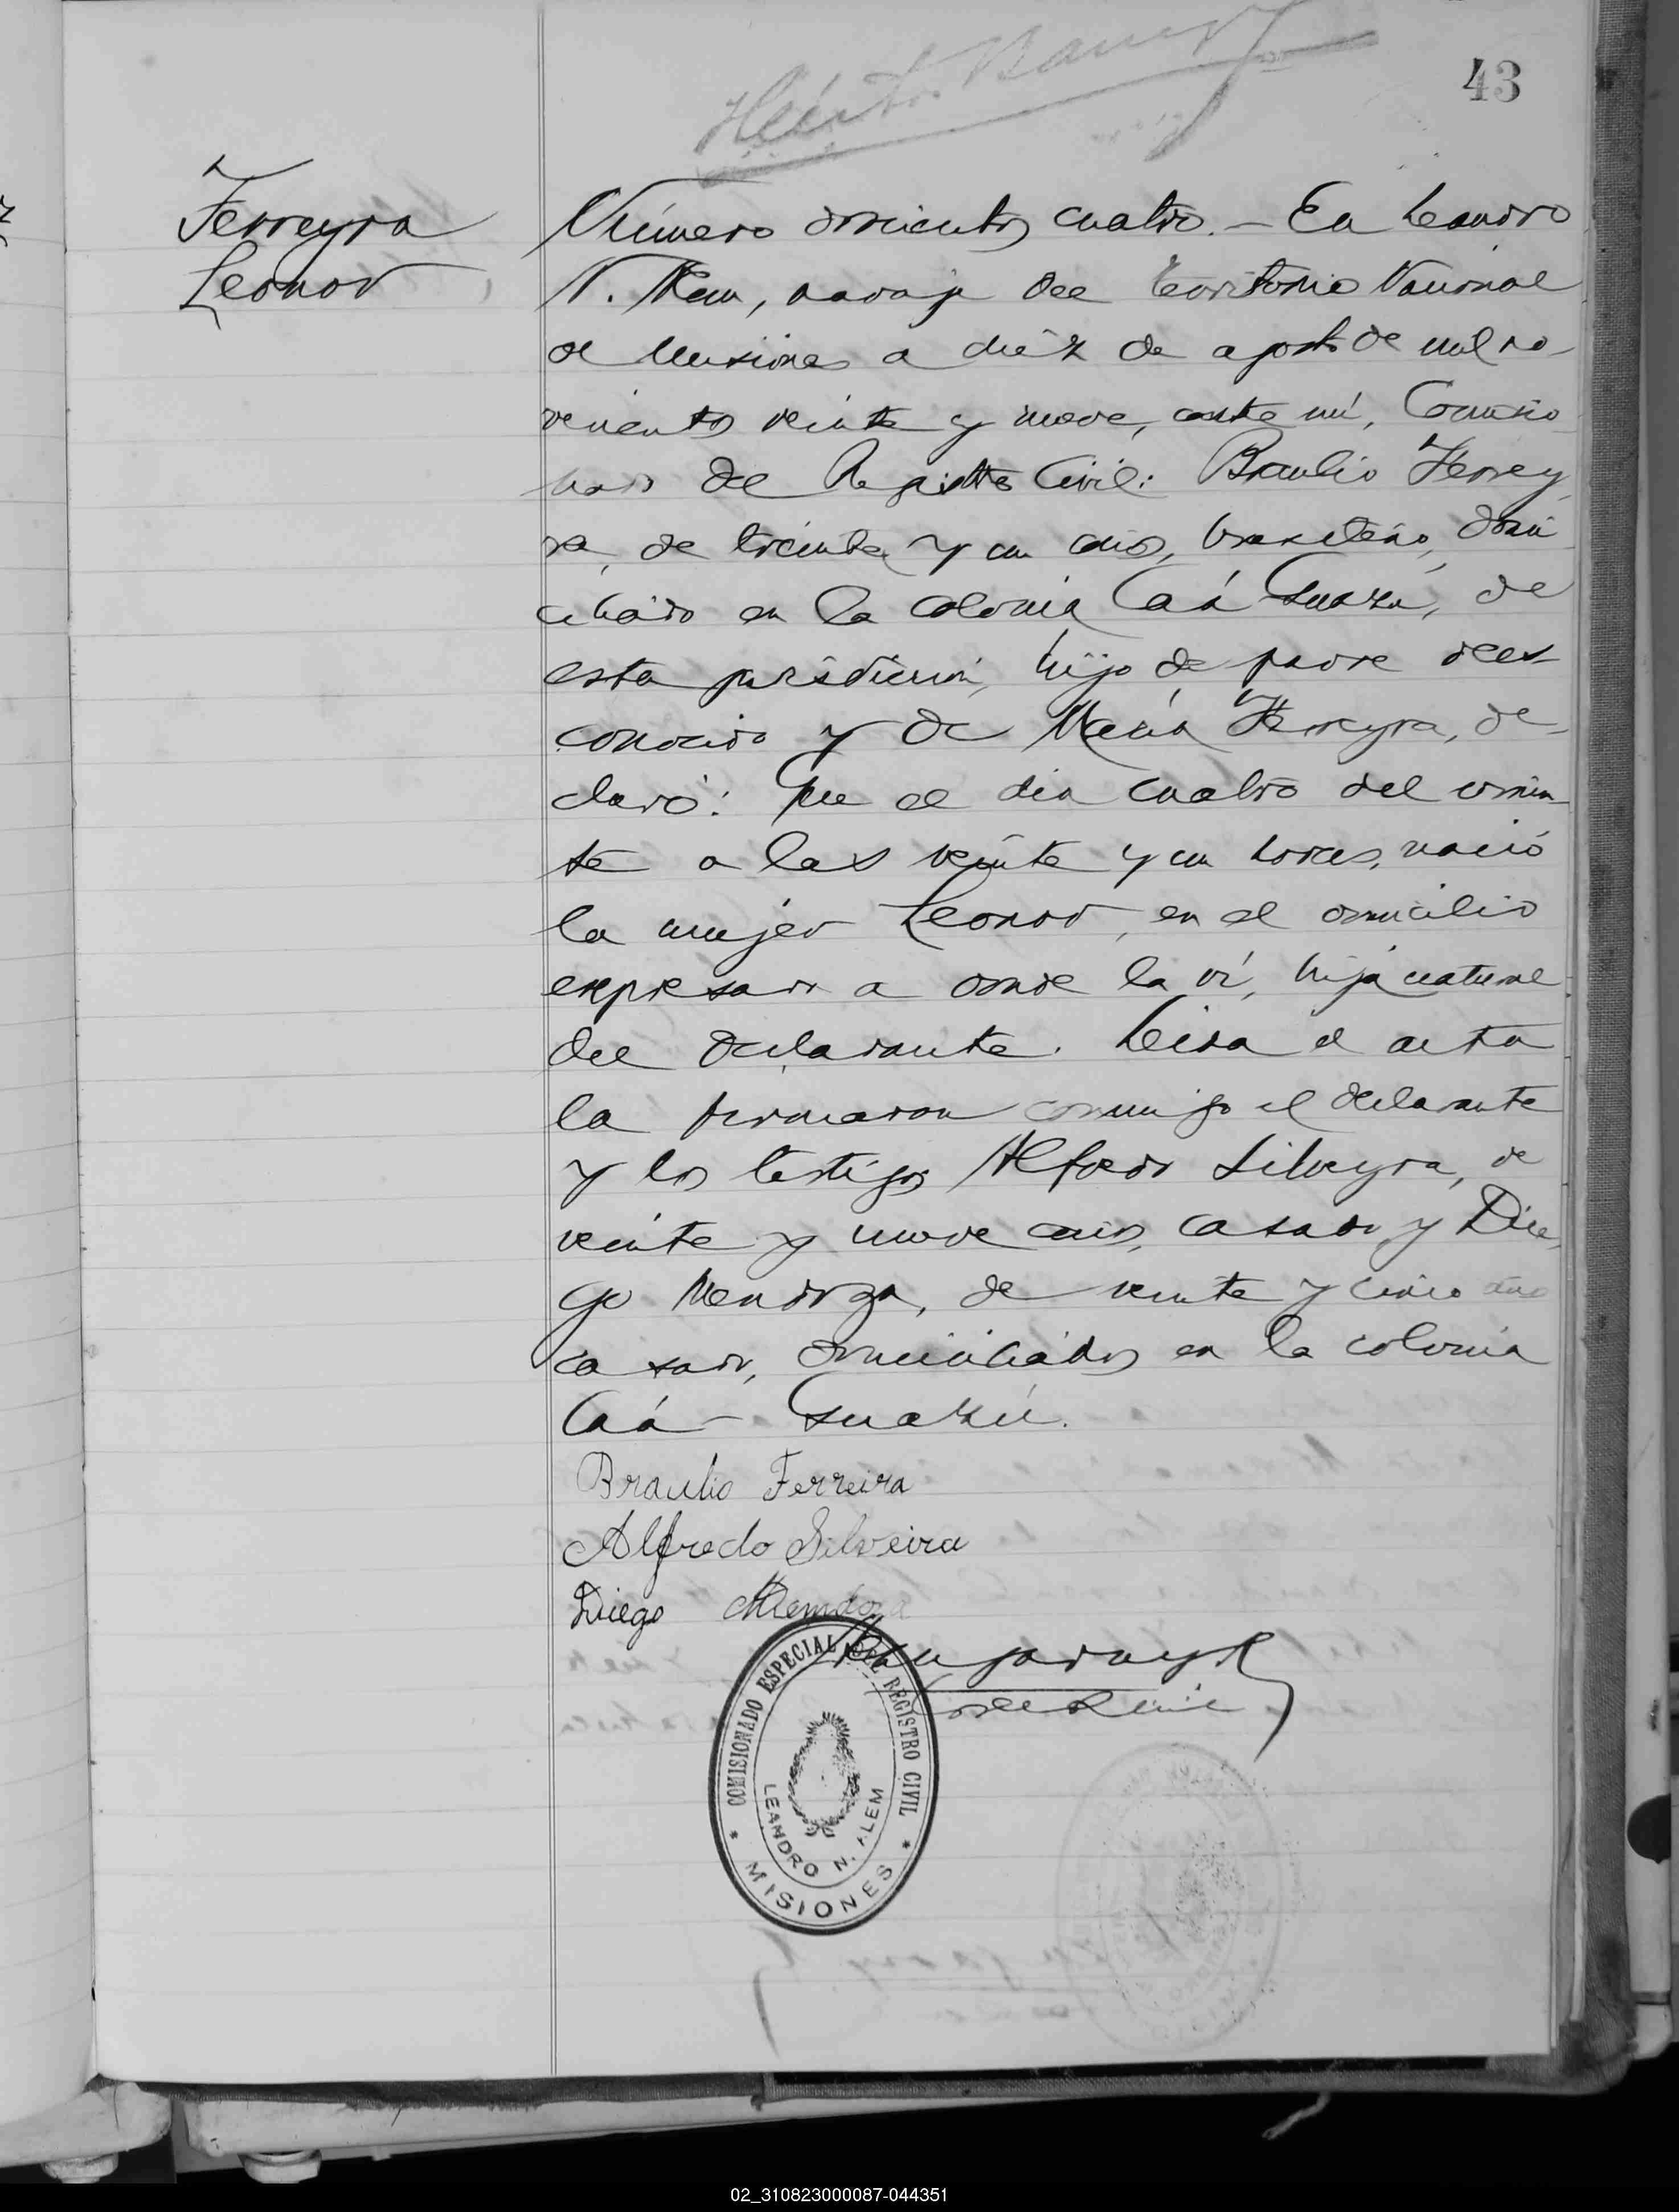 43
Ferreyra
Leonor
Número doscientos cuatro. - En Leandro
N. Alem, paraje del Territorio Nacional
de Misiones a diéz de agosto de mil no-
vecientos veinte y nueve, ante mí, Comisio-
nado del Registro Civil: Braulio Ferrey-
ra, de treinta y un años, brasileño, domi-
ciliado en la colonia Caá Guazú, de
esta jurisdicción, hijo de padre des-
conocido y de María Ferreyra, de-
claró: Que el día cuatro del corrien-
te a las veinte y un horas, nació
la mujer Leonor, en el domicilio
expresado a donde la ví, hija natural
del declarante. Leida el acta
la firmaron conmigo el declarante
y los testigos Alfredo Silveyra, de
veinte y nueve años, casado y Die-
go Mendoza, de veinte y cinco años
casado, domiciliados en la colonia
Caá-Guazú.
Braulio Ferreira
Alfredo Silveira
Diego Mendoza
COMISIONADO ESPECIAL DEL REGISTRO CIVIL
LEANDRO N. ALEM
* MISIONES *
02_310823000087-044351